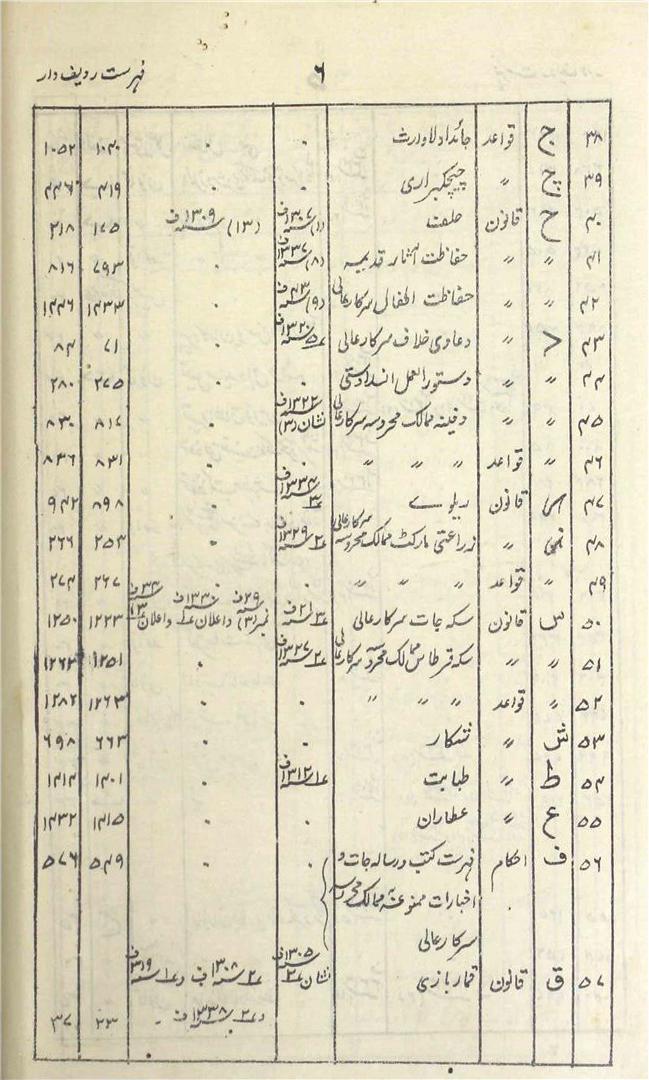 ۶ فہرست ردیف دار
۳۸ ج قواعد جائداد لاوارث ۰ ۰ ۱۰۴۰ ۱۰۵۲
۳۹ چ 〃 چیچک براری ۰ ۰ ۴۱۹ ۴۴۶
۴۰ ح قانون حلف (۱) ۱۳۰۷ف (۱۳) ۱۳۰۹ف ۱۷۵ ۲۱۸
۴۱ 〃 〃 حفاظت آثار قدیمہ (۸) ۱۳۳۷ف ۰ ۷۹۳ ۸۱۶
۴۲ 〃 〃 حفاظت اطفال سرکارعالی (۹) ۴۳ف ۰ ۱۴۳۳ ۱۴۴۶
۴۳ د 〃 دعاوی خلاف سرکارعالی ۵ ۱۳۲۰ف ۰ ۷۱ ۸۴
۴۴ 〃 〃 دستورالعمل انسداد ستی ۰ ۰ ۲۷۵ ۲۸۰
۴۵ 〃 〃 دفینہ ممالک محروسہ سرکارعالی نشان (۳) ۱۳۲۲ف ۰ ۸۱۷ ۸۳۰
۴۶ 〃 قواعد 〃 〃 〃 ۰ ۰ ۸۳۱ ۸۳۶
۴۷ ر قانون ریلوے ۳ ۱۳۳۴ف ۰ ۸۹۸ ۹۴۲
۴۸ ز 〃 زراعتی مارکٹ ممالک محروسہ سرکارعالی ۲ ۱۳۲۹ف ۰ ۲۵۳ ۲۶۶
۴۹ 〃 قواعد 〃 〃 〃 ۰ ۰ ۲۶۷ ۲۷۴
۵۰ س قانون سکہ جات سرکارعالی ۳ ۲۱ف نمبر (۳) ۲۹ف و اعلان ۱ ۱۳۳۰ف و اعلان ۳۴ف ۱۲۲۳ ۱۲۵۰
۵۱ 〃 〃 سکہ قرطاس ممالک محروسہ سرکارعالی ۲ ۱۳۲۷ف ۰ ۱۲۵۱ ۱۲۶۳
۵۲ 〃 قواعد 〃 〃 〃 ۰ ۰ ۱۲۶۳ ۱۲۸۲
۵۳ ش 〃 شکار ۰ ۰ ۶۶۳ ۶۹۸
۵۴ ط 〃 طبابت ۱ ۱۳۱۲ف ۰ ۱۴۰۱ ۱۴۱۴
۵۵ ع 〃 عطاران ۰ ۰ ۱۴۱۵ ۱۴۳۲
۵۶ ف احکام فہرست کتب و رسالہ جات و ۰ ۰ ۵۴۹ ۵۷۶
اخبارات ممنوعہ ممالک محروسہ
سرکارعالی
۵۷ ق قانون قماربازی نشان ۲ ۱۳۰۵ف ۲ ۱۳۰۸ف و ۱ ۳۱۹ف
و ۲ ۱۳۳۸ف ۲۳ ۳۷